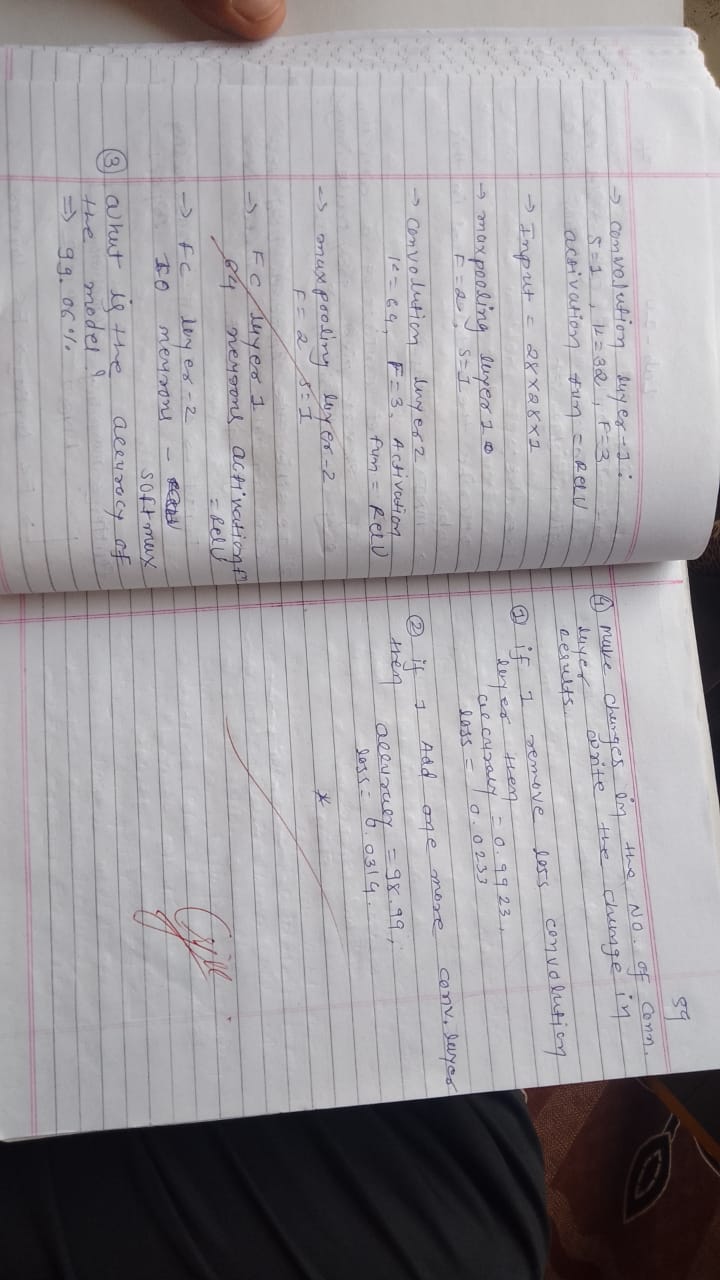 → convolution layer-1:
S=1, K=32, F=3
activation fun = RelU
→ Input = 28×28×1
→ maxpooling layer 1
F=2, S=1
→ convolution layer 2
K=64, F=3, Activation
fun = RelU
→ maxpooling layer-2
F=2 S=1
→ FC layer 1
64 neurons activation f
= RelU
→ FC layer-2
10 neurons -
softmax
③ what is the accuracy of
the model?
⇒ 99.06%
54
④ make changes in the No. of Conn.
layer write the change in
results.
① if I remove less convolution
layer then
accuracy = 0.9923,
loss = 0.0233
② if I Add one more conv. layer
then accuracy = 98.99,
loss = 0.0314.
*